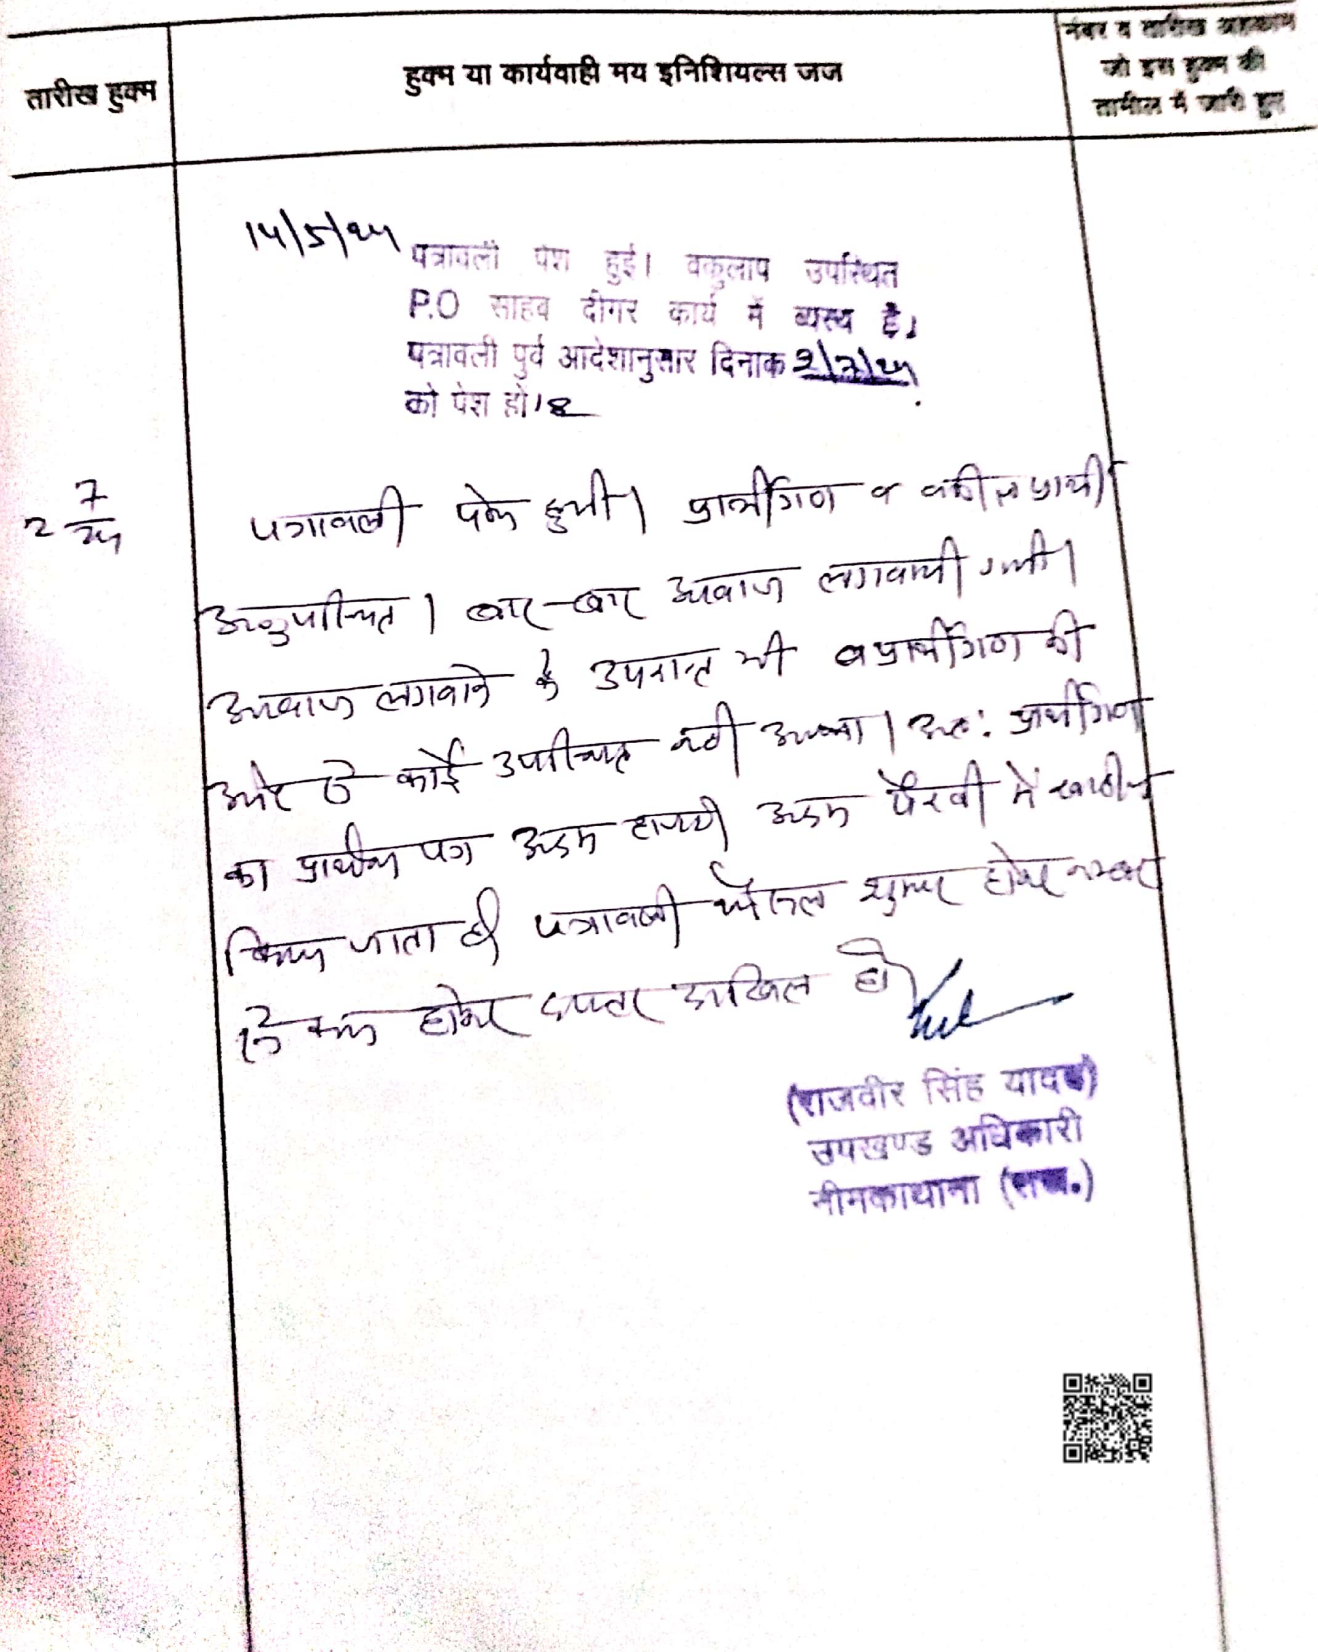 तारीख हुक्म
हुक्म या कार्यवाही मय इनिशियल्स जज
नंबर व तारीख अहकाम
जो इस हुक्म की
तामील में जारी हुए
14/5/25
पत्रावली पेश हुई। वकुलाप उपस्थित
P.O साहब दीगर कार्य में व्यस्थ है।
पत्रावली पुर्व आदेशानुसार दिनाक 2/7/25
को पेश हो।
2 7/25
पत्रावली पेश हुयी। प्रार्थीगण व वकील प्रार्थी
अनुपस्थित। बार-बार आवाज लगवायी गयी।
आवाज लगवाने के उपरान्त भी प्रार्थीगण की
ओर से कोई उपस्थित नही आया। अतः प्रार्थीगण
का प्रार्थना पत्र अदम हाजरी अदम पैरवी में खारीज
किया जाता है। पत्रावली फैसल शुमार होकर नम्बर
से कम होकर दफ्तर दाखिल हो।
(राजवीर सिंह यादव)
उपखण्ड अधिकारी
नीमकाथाना (राज.)